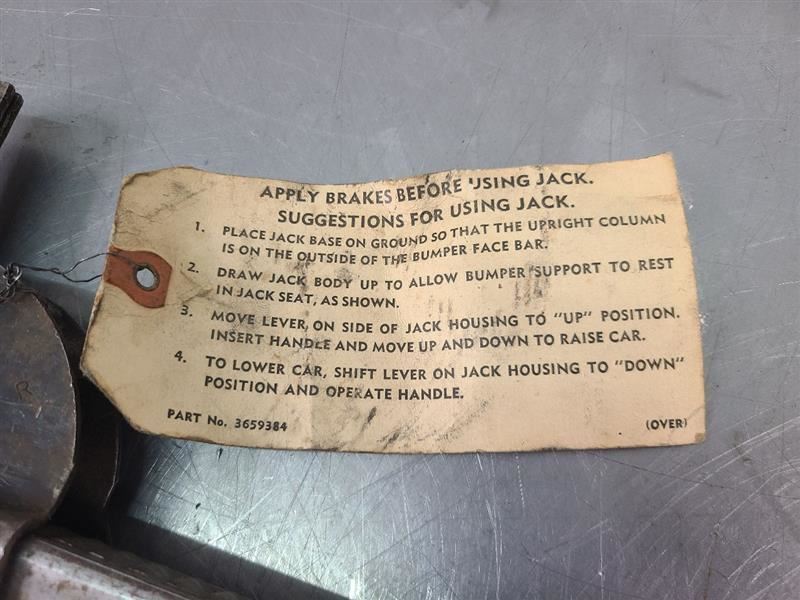 APPLY BRAKES BEFORE USING JACK.
SUGGESTIONS FOR USING JACK.
1. PLACE JACK BASE ON GROUND SO THAT THE UPRIGHT COLUMN
IS ON THE OUTSIDE OF THE BUMPER FACE BAR.
2. DRAW JACK BODY UP TO ALLOW BUMPER SUPPORT TO REST
IN JACK SEAT, AS SHOWN.
3. MOVE LEVER, ON SIDE OF JACK HOUSING TO "UP" POSITION.
INSERT HANDLE AND MOVE UP AND DOWN TO RAISE CAR.
4. TO LOWER CAR, SHIFT LEVER ON JACK HOUSING TO "DOWN"
POSITION AND OPERATE HANDLE.
PART No. 3659384
(OVER)
R